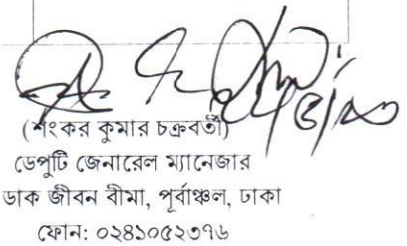 (শংকর কুমার চক্রবর্তী)
ডেপুটি জেনারেল ম্যানেজার
ডাক জীবন বীমা, পূর্বাঞ্চল, ঢাকা
ফোন: ০২৪১০৫২৩৭৬